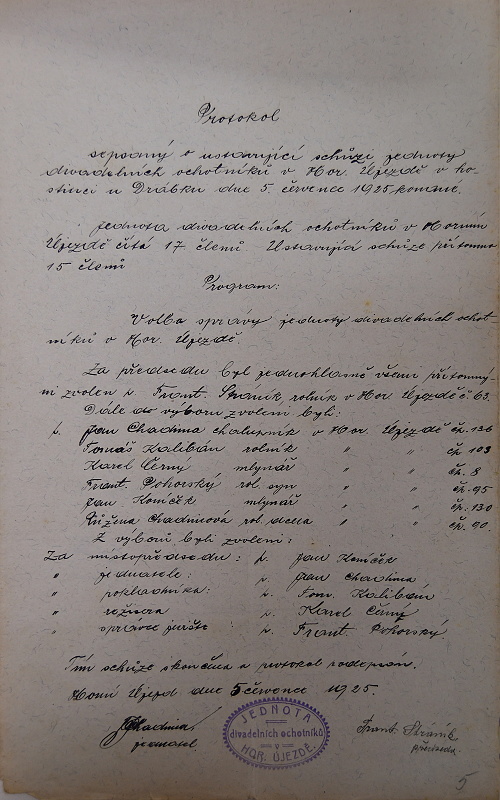 Protokol
sepsaný o ustavující schůzi jednoty
divadelních ochotníků v Hor. Újezdě v ho-
stinci u Drábků dne 5. července 1925 konané.
Jednota divadelních ochotníků v Horním
Újezdě čítá 17 členů - Ustavující schůze přítomno
15 členů
Program:
Volba správy jednoty divadelních ochot-
níků v Hor. Újezdě.
Za předsedu byl jednohlasně všemi přítomný-
mi zvolen p. Frant. Stráník rolník v Hor Újezdě č. 63.
Dále do výboru zvoleni byli:
p. Jan Chadima chalupník v Hor. Újezdě čp. 136
Tomáš Kalibán rolník " " čp. 103
Karel Černý mlynář " " čp. 8
Frant Pohorský rol. syn " " čp. 95
Jan Koníček mlynář " " čp. 130
Růžena Chadimová rol. dcera " " čp. 90
Z výboru byli zvoleni:
Za místopředsedu: p. Jan Koníček
" jednatele: p. Jan Chadima
" pokladníka: p. Tom. Kalibán
" režiséra p. Karel Černý
" správce jeviště: p. Frant. Pohorský.
Tím schůze skončena a protokol podepsán.
Horní Újezd dne 5 července 1925.
JChadima
jednatel.
JEDNOTA
divadelních ochotníků
v
HOR. ÚJEZDĚ.
Frant. Stráník
předseda.
5